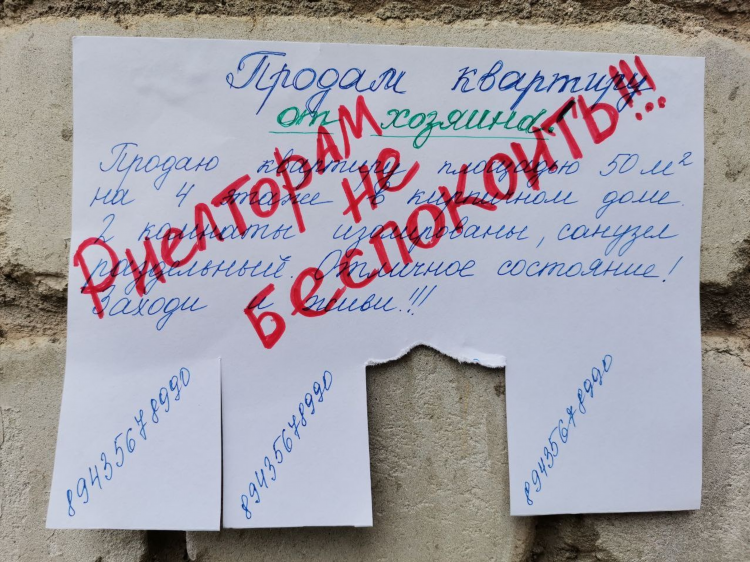 Продам квартиру
от хозяина!
Продаю квартиру площадью 50 м²
на 4 этаже в кирпичном доме.
2 комнаты изолированы, санузел
раздельный. Отличное состояние!
Заходи и живи!!!
Риелторам
не
беспокоить!!!
89435678990
89435678990
89435678990